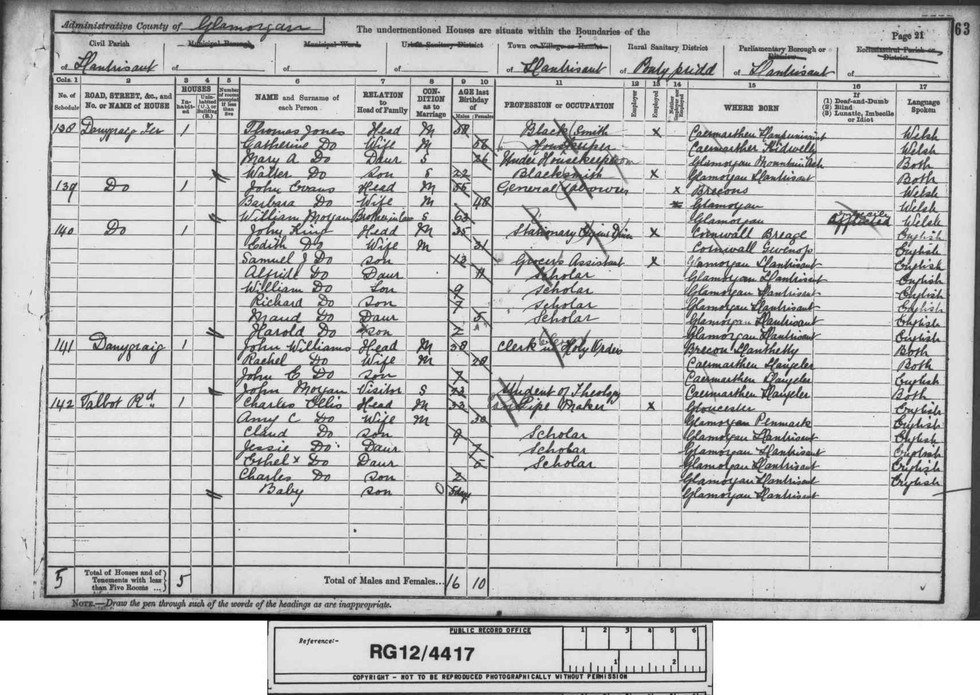 Administrative County of Glamorgan
The undermentioned Houses are situate within the Boundaries of the
Page 21
63
Civil Parish Municipal Borough Municipal Ward Urban Sanitary District Town or Village or Hamlet Rural Sanitary District Parliamentary Borough or Division Ecclesiastical Parish or District
of Llantrissant of of of of Llantrisant of Pontypridd of Llantrisant of
Cols. 1 2 3 4 5 6 7 8 9 10 11 12 13 14 15 16 17
No. of Schedule ROAD, STREET, &c., and No. or NAME of HOUSE HOUSES Inhabited Uninhabited (U.), or Building (B.) Number of rooms occupied if less than five NAME and Surname of each Person RELATION to Head of Family CONDITION as to Marriage AGE last Birthday of Males Females PROFESSION or OCCUPATION Employer Employed Neither Employer nor Employed WHERE BORN If (1) Deaf-and-Dumb (2) Blind (3) Lunatic, Imbecile or Idiot Language Spoken
138 Danygraig Ter 1 Thomas Jones Head M 58 Black Smith x Caermarthen Welsh
Catherine Do Wife M 58 Housekeeper Caermarthen Kidwelly Welsh
Mary A Do Daur S 26 Under Housekeeper Glamorgan Mountain Ash Both
Walter Do Son S 22 Blacksmith x Glamorgan Llantrisant Both
139 Do 1 John Evans Head M 56 General x Brecons Welsh
Barbara Do Wife M 48 Glamorgan Welsh
William Morgan Brother in law S 63 Glamorgan Afflicted Welsh
140 Do 1 John King Head M 35 Stationary Engine x Cornwall Breage English
Edith Do Wife M 31 Cornwall English
Samuel J Do son 13 Grocers Assistant x Glamorgan Llantrisant English
Alfrida Do Daur 11 Scholar Glamorgan Llantrisant English
William Do Son 9 Scholar Glamorgan Llantrisant English
Richard Do Son 7 Scholar Glamorgan Llantrisant English
Maud Do Daur 5 Scholar Glamorgan Llantrisant English
Harold Do Son 2 Glamorgan Llantrisant English
141 Danygraig 1 John Williams Head M 38 Clerk in Holy Orders Brecon Llanthetty Both
Rachel Do Wife M 28 Caermarthen Llangeler Both
John E Do son 2 Caermarthen Llangeler English
John Morgan Visitor S 23 Student of Theology Caermarthen Llangeler Both
142 Talbot Rd 1 Charles Ellis Head M 32 Pipe Maker x Gloucester English
Amy C Do Wife M 30 Glamorgan Penmark English
Claud Do son 9 Scholar Glamorgan Llantrisant English
Jessie Do Daur 7 Scholar Glamorgan Llantrisant English
Ethel x Do Daur 5 Scholar Glamorgan Llantrisant English
Charles Do son 2 Glamorgan Llantrisant English
Baby son 5 days Glamorgan Llantrisant
5 Total of Houses and of Tenements with less than Five Rooms ... 5 Total of Males and Females... 16 10
NOTE.—Draw the pen through such of the words of the headings as are inappropriate.
PUBLIC RECORD OFFICE
Reference:-
RG12/4417
1 2 3 4 5 6
1 2
COPYRIGHT - NOT TO BE REPRODUCED PHOTOGRAPHICALLY WITHOUT PERMISSION